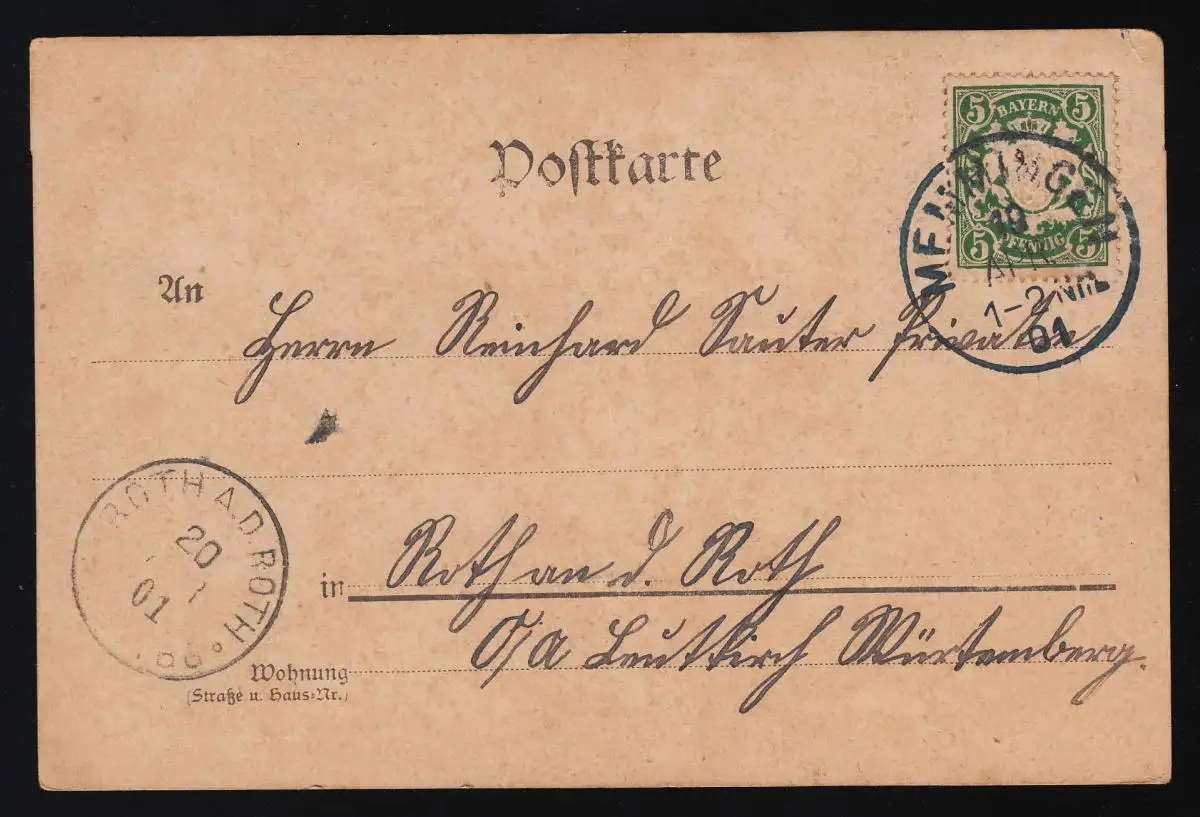 5 BAYERN 5
5 PFENNIG 5
Postkarte
MEMMINGEN
19
APR
1-2 Nm.
01
An
Herrn Reinhard Sauter Privatier
ROTH A.D. ROTH
20
01
in Roth an d. Roth
O/A Leutkirch Würtemberg.
Wohnung
(Straße u. Haus=Nr.)